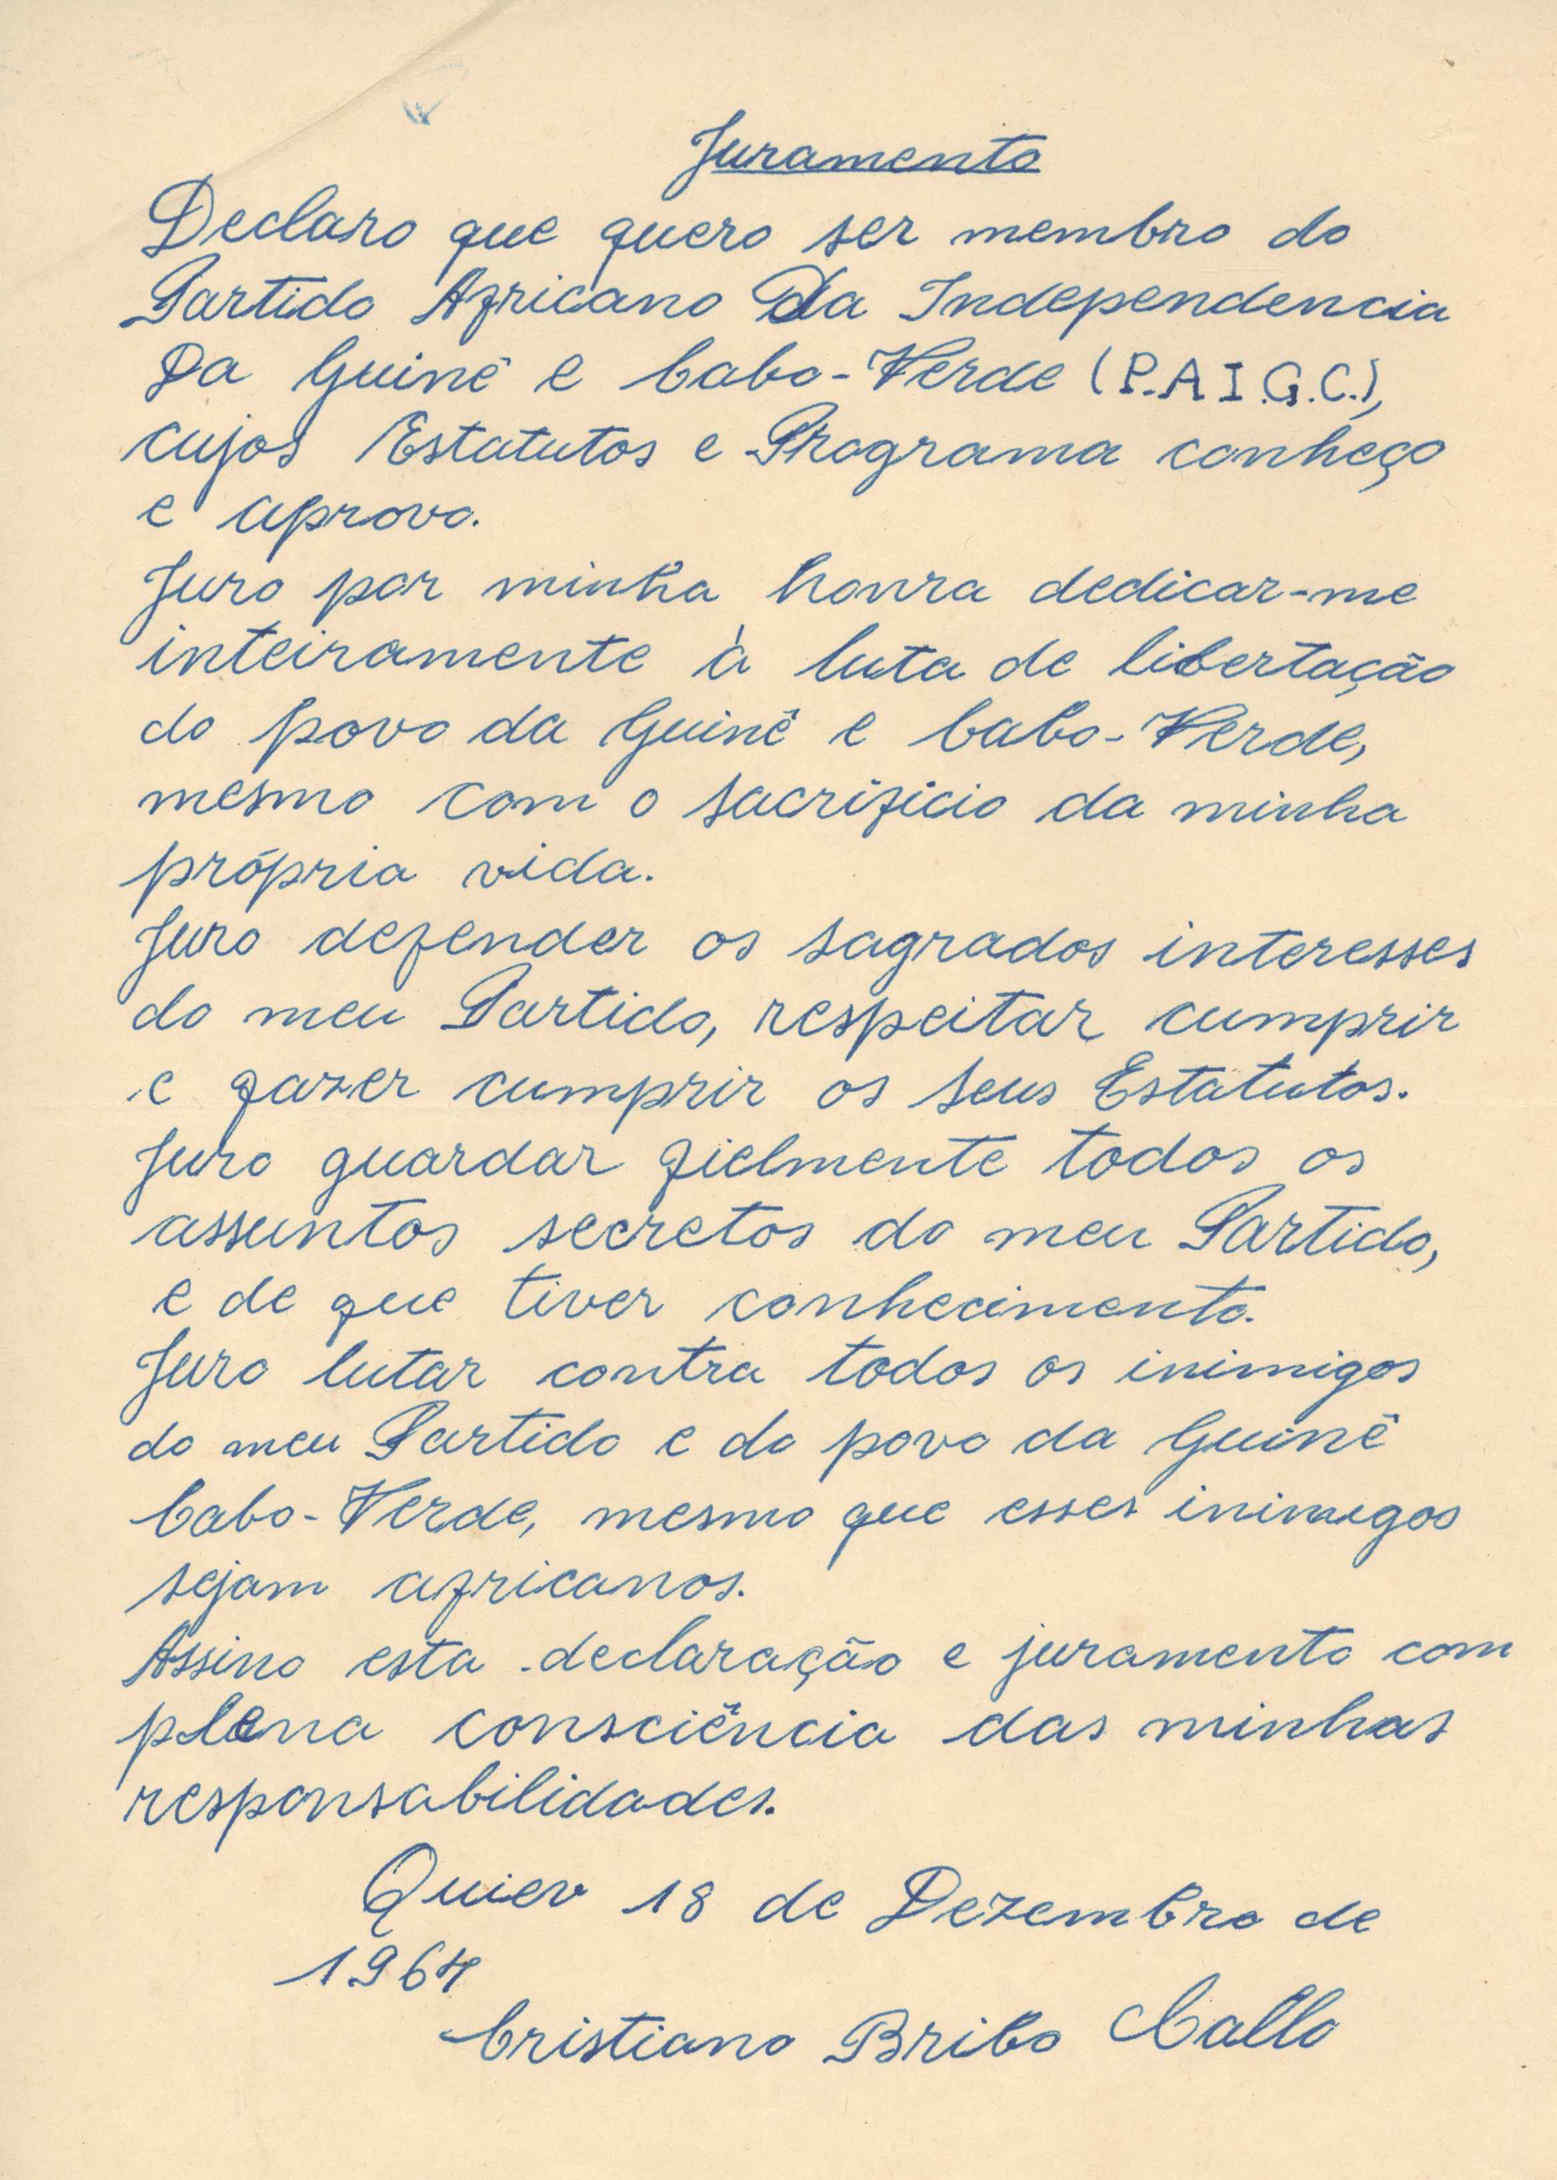 Juramento
Declaro que quero ser membro do
Partido Africano Da Independencia
Da Guinê e Cabo-Verde (P.A I.G.C.),
cujos Estatutos e Programa conheço
e aprovo.
Juro por minha honra dedicar-me
inteiramente à luta de libertação
do povo da Guinê e Cabo-Verde,
mesmo com o sacrificio da minha
própria vida.
Juro defender os sagrados interesses
do meu Partido, respeitar cumprir
e fazer cumprir os seus Estatutos.
Juro guardar fielmente todos os
assuntos secretos do meu Partido,
e de que tiver conhecimento.
Juro lutar contra todos os inimigos
do meu Partido e do povo da Guinê
Cabo-Verde, mesmo que esses inimigos
sejam africanos.
Assino esta declaração e juramento com
plena consciência das minhas
responsabilidades.
Quiev 18 de Dezembro de
1964
Cristiano Bribo Callo